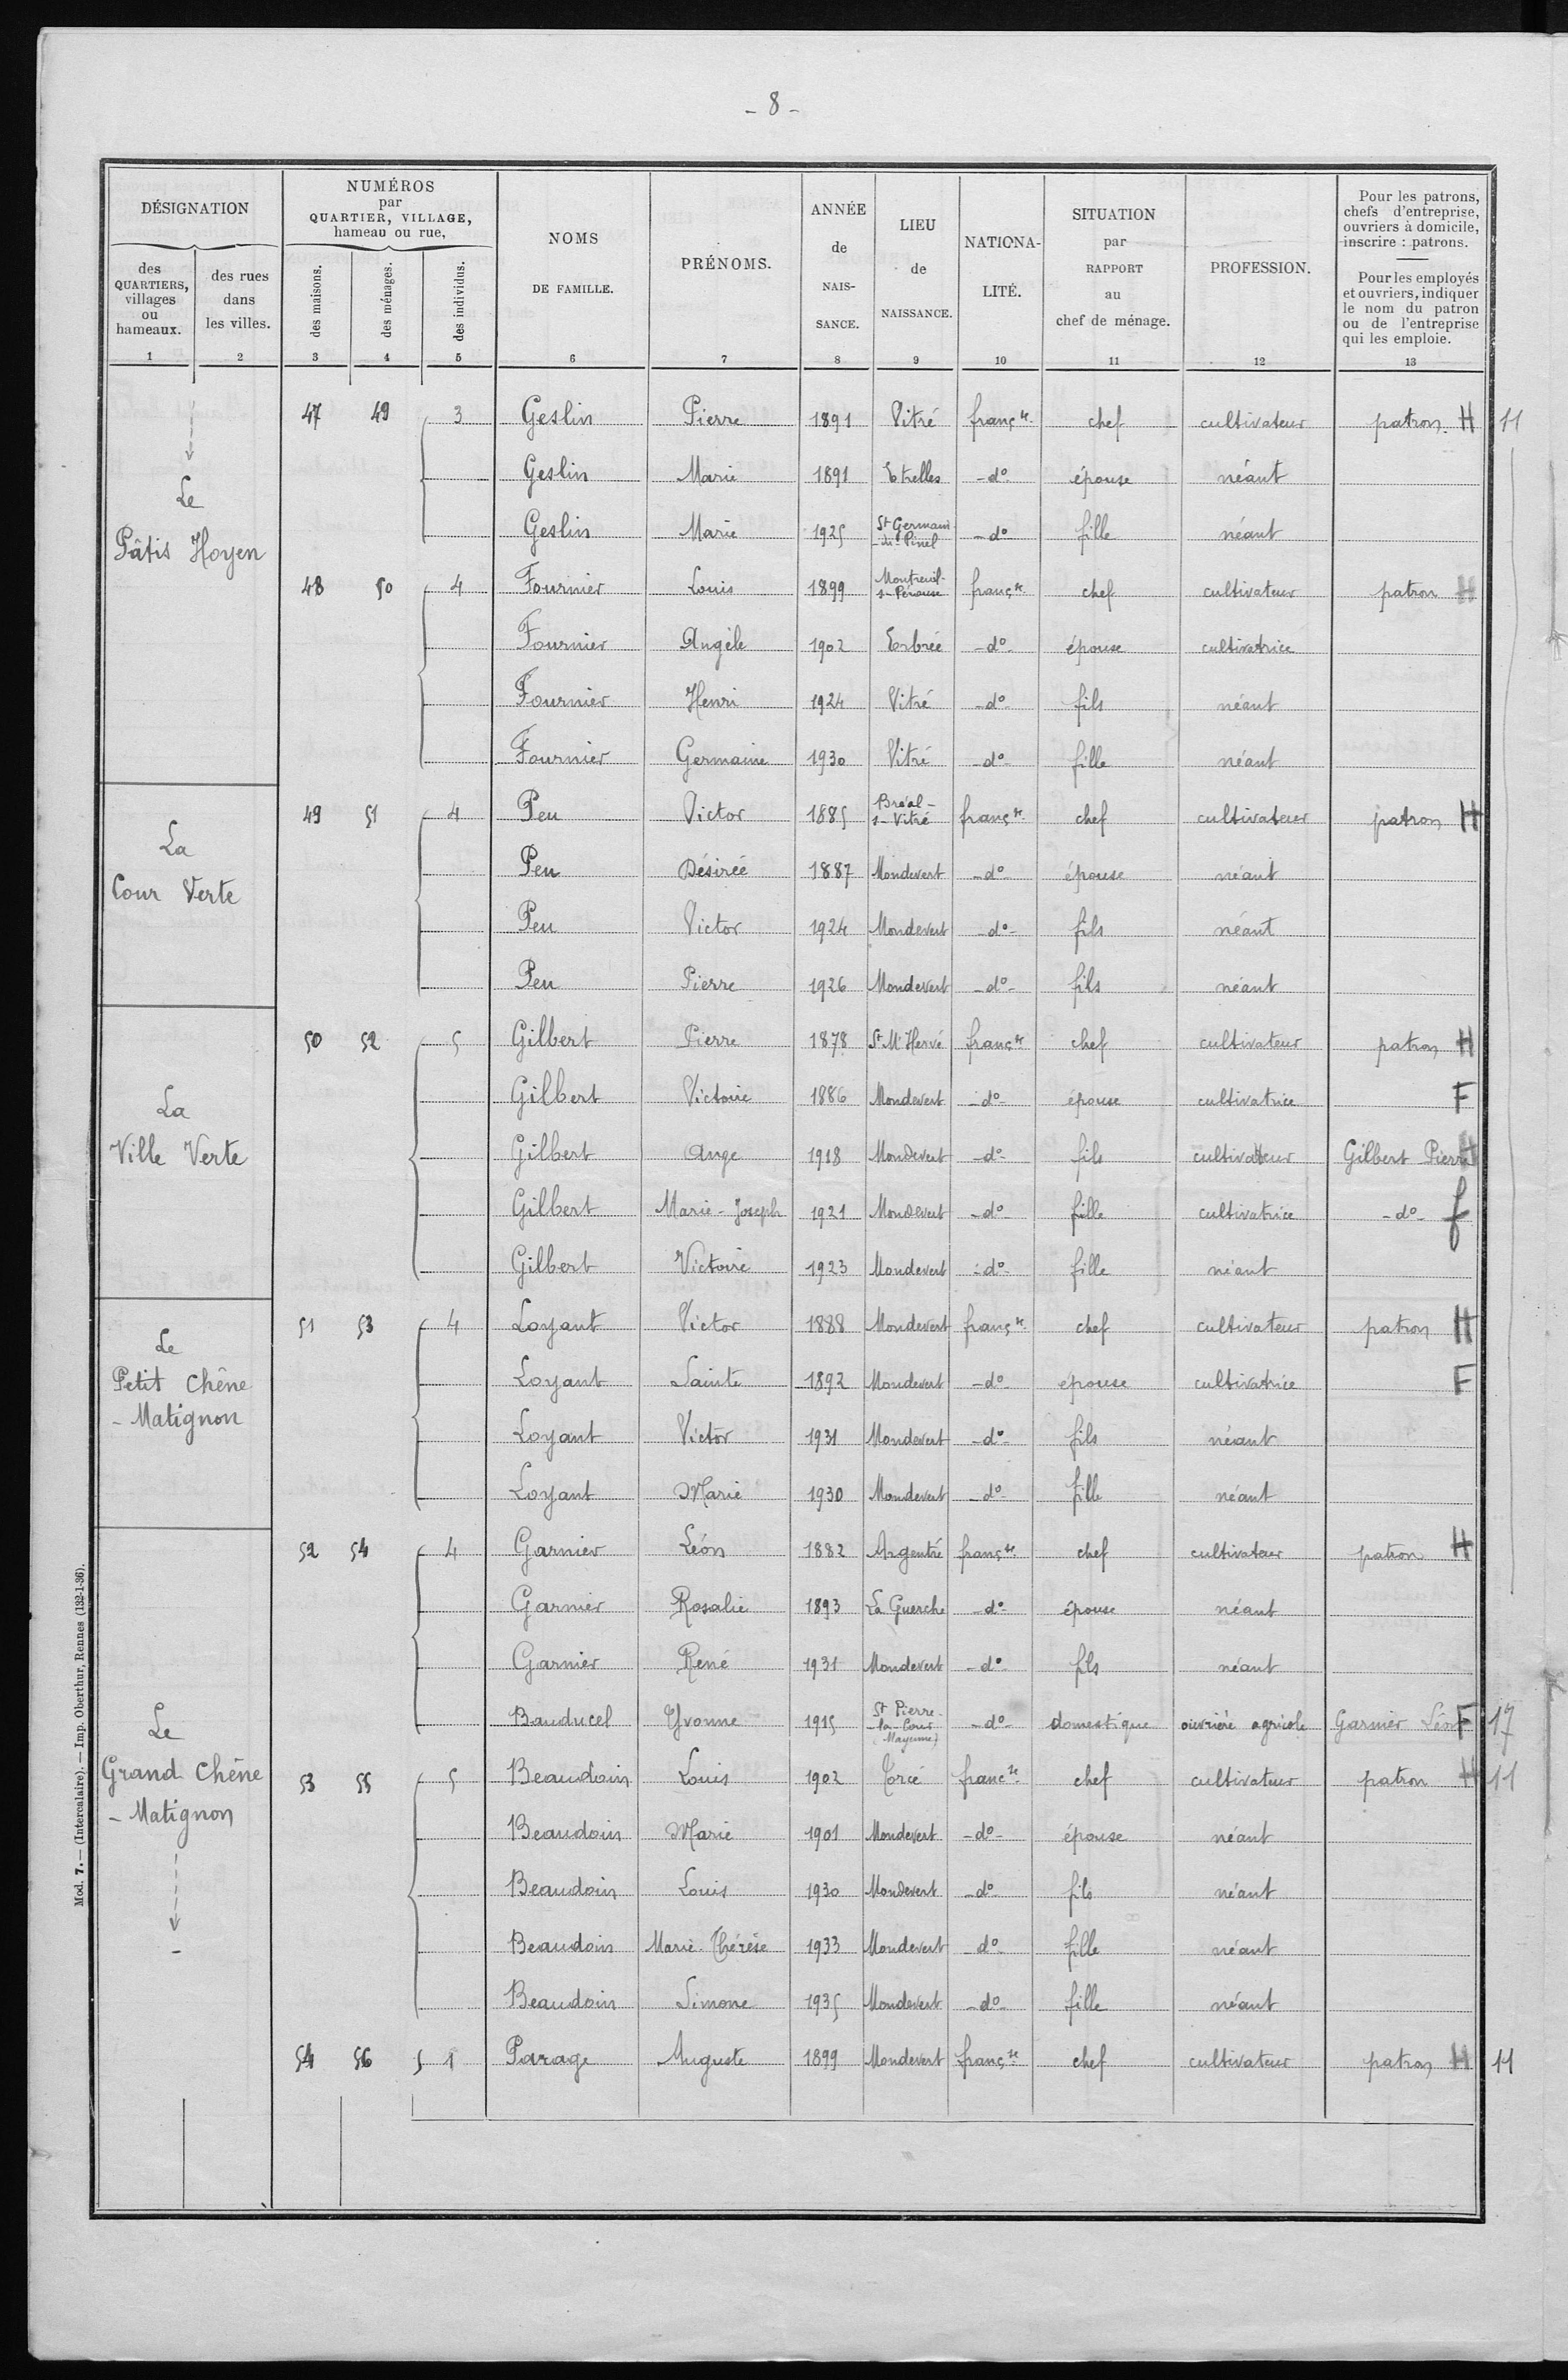 - 8 -
DÉSIGNATION
des QUARTIERS, villages ou hameaux.
des rues dans les villes.
NUMÉROS par QUARTIER, VILLAGE, hameau ou rue,
des maisons.
des ménages.
des individus.
NOMS DE FAMILLE.
PRÉNOMS.
ANNÉE de NAIS-SANCE.
LIEU de NAISSANCE.
NATIONA-LITÉ.
SITUATION par RAPPORT au chef de ménage.
PROFESSION.
Pour les patrons, chefs d'entreprise, ouvriers à domicile, inscrire : patrons.
Pour les employés et ouvriers, indiquer le nom du patron ou de l'entreprise qui les emploie.
1 2 3 4 5 6 7 8 9 10 11 12 13
47 49 3 Geslin Pierre 1891 Vitré franç se. chef cultivateur patron. H 11
Geslin Marie 1891 Etrelles -do- épouse néant
Le Pâtis Hoyen
Geslin Marie 1925 St Germain-du-Pinel -do- fille néant
48 50 4 Fournier Louis 1899 Montreuil-s-Pérouse franç se. chef cultivateur patron H
Fournier Angèle 1902 Erbrée -do- épouse cultivatrice
Fournier Henri 1924 Vitré -do- fils néant
Fournier Germaine 1930 Vitré -do- fille néant
49 51 4 Peu Victor 1885 Bréal-s-Vitré franç se. chef cultivateur patron H
La Cour Verte
Peu Désirée 1887 Mondevert -do- épouse néant
Peu Victor 1924 Mondevert -do- fils néant
Peu Pierre 1926 Mondevert -do- fils néant
50 52 5 Gilbert Pierre 1878 St M. Hervé franç se chef cultivateur patron H
La Ville Verte
Gilbert Victoire 1886 Mondevert -do- épouse cultivatrice F
Gilbert Ange 1918 Mondevert -do- fils cultivateur Gilbert Pierre H
Gilbert Marie-Joseph 1921 Mondevert -do- fille cultivatrice -do- f
Gilbert Victoire 1923 Mondevert -do- fille néant
51 53 4 Loyant Victor 1888 Mondevert franç se. chef cultivateur patron H
Le Petit Chêne - Matignon
Loyant Sainte 1892 Mondevert -do- épouse cultivatrice F
Loyant Victor 1931 Mondevert -do- fils néant
Loyant Marie 1930 Mondevert -do- fille néant
52 54 4 Garnier Léon 1882 Argentré franç se. chef cultivateur patron H
Garnier Rosalie 1893 La Guerche -do- épouse néant
Garnier René 1931 Mondevert -do- fils néant
Bauducel Yvonne 1915 St Pierre-la-Cour (Mayenne) -do- domestique ouvrière agricole Garnier Léon F 17
Le Grand Chêne - Matignon
53 55 5 Beaudoin Louis 1902 Torcé franc se. chef cultivateur patron H 11
Beaudoin Marie 1901 Mondevert -do- épouse néant
Beaudoin Louis 1930 Mondevert -do- fils néant
Beaudoin Marie-Thérèse 1933 Mondevert -do- fille néant
Beaudoin Simone 1935 Mondevert -do- fille néant
54 56 5 1 Parage Auguste 1899 Mondevert franç se chef cultivateur patron H 11
Mod. 7. — (Intercalaire). — Imp. Oberthur, Rennes (132-1-36).